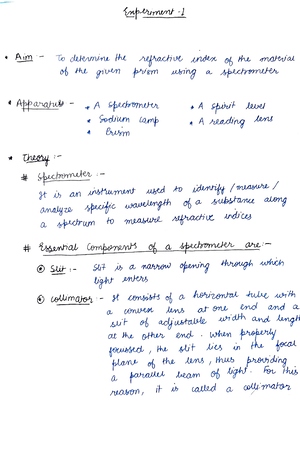 Experiment -1
• Aim :- To determine the refractive index of the material
of the given prism using a spectrometer
• Apparatus :- • A spectrometer • A spirit level
• Sodium lamp • A reading lens
• Prism
• Theory :-
# Spectrometer :-
It is an instrument used to identify / measure /
analyze specific wavelength of a substance along
a spectrum to measure refractive indices
# Essential Components of a spectrometer are :-
⊙ Slit :- Slit is a narrow opening through which
light enters
⊙ Collimator :- It consists of a horizontal tube with
a convex lens at one end and a
slit of adjustable width and length
at the other end. When properly
focussed, the slit lies in the focal
plane of the lens, thus providing
a parallel beam of light. For this
reason, it is called a collimator